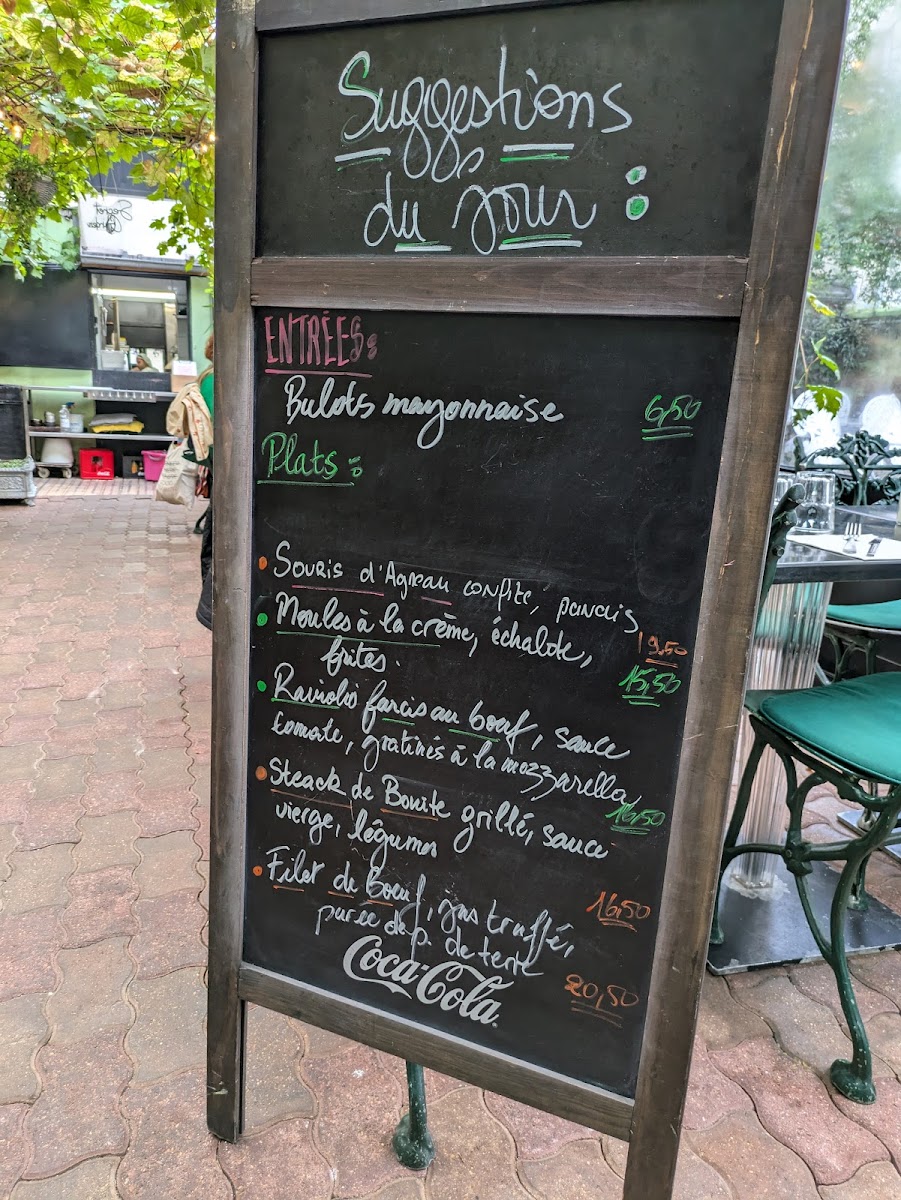 Suggestions
du jour :
ENTRÉES :
Bulots mayonnaise 6,50
Plats :
• Souris d'Agneau confite, panais
19.50
• Moules à la crème, échalote,
frites. 15,50
• Raviolis farcis au boeuf, sauce
tomate, gratinés à la mozzarella
16,50
• Steack de Bonite grillé, sauce
vierge, légumes
16,50
• Filet de Boeuf, jus truffé,
purée de p. de terre
20,50
Coca-Cola
Secret
Garden